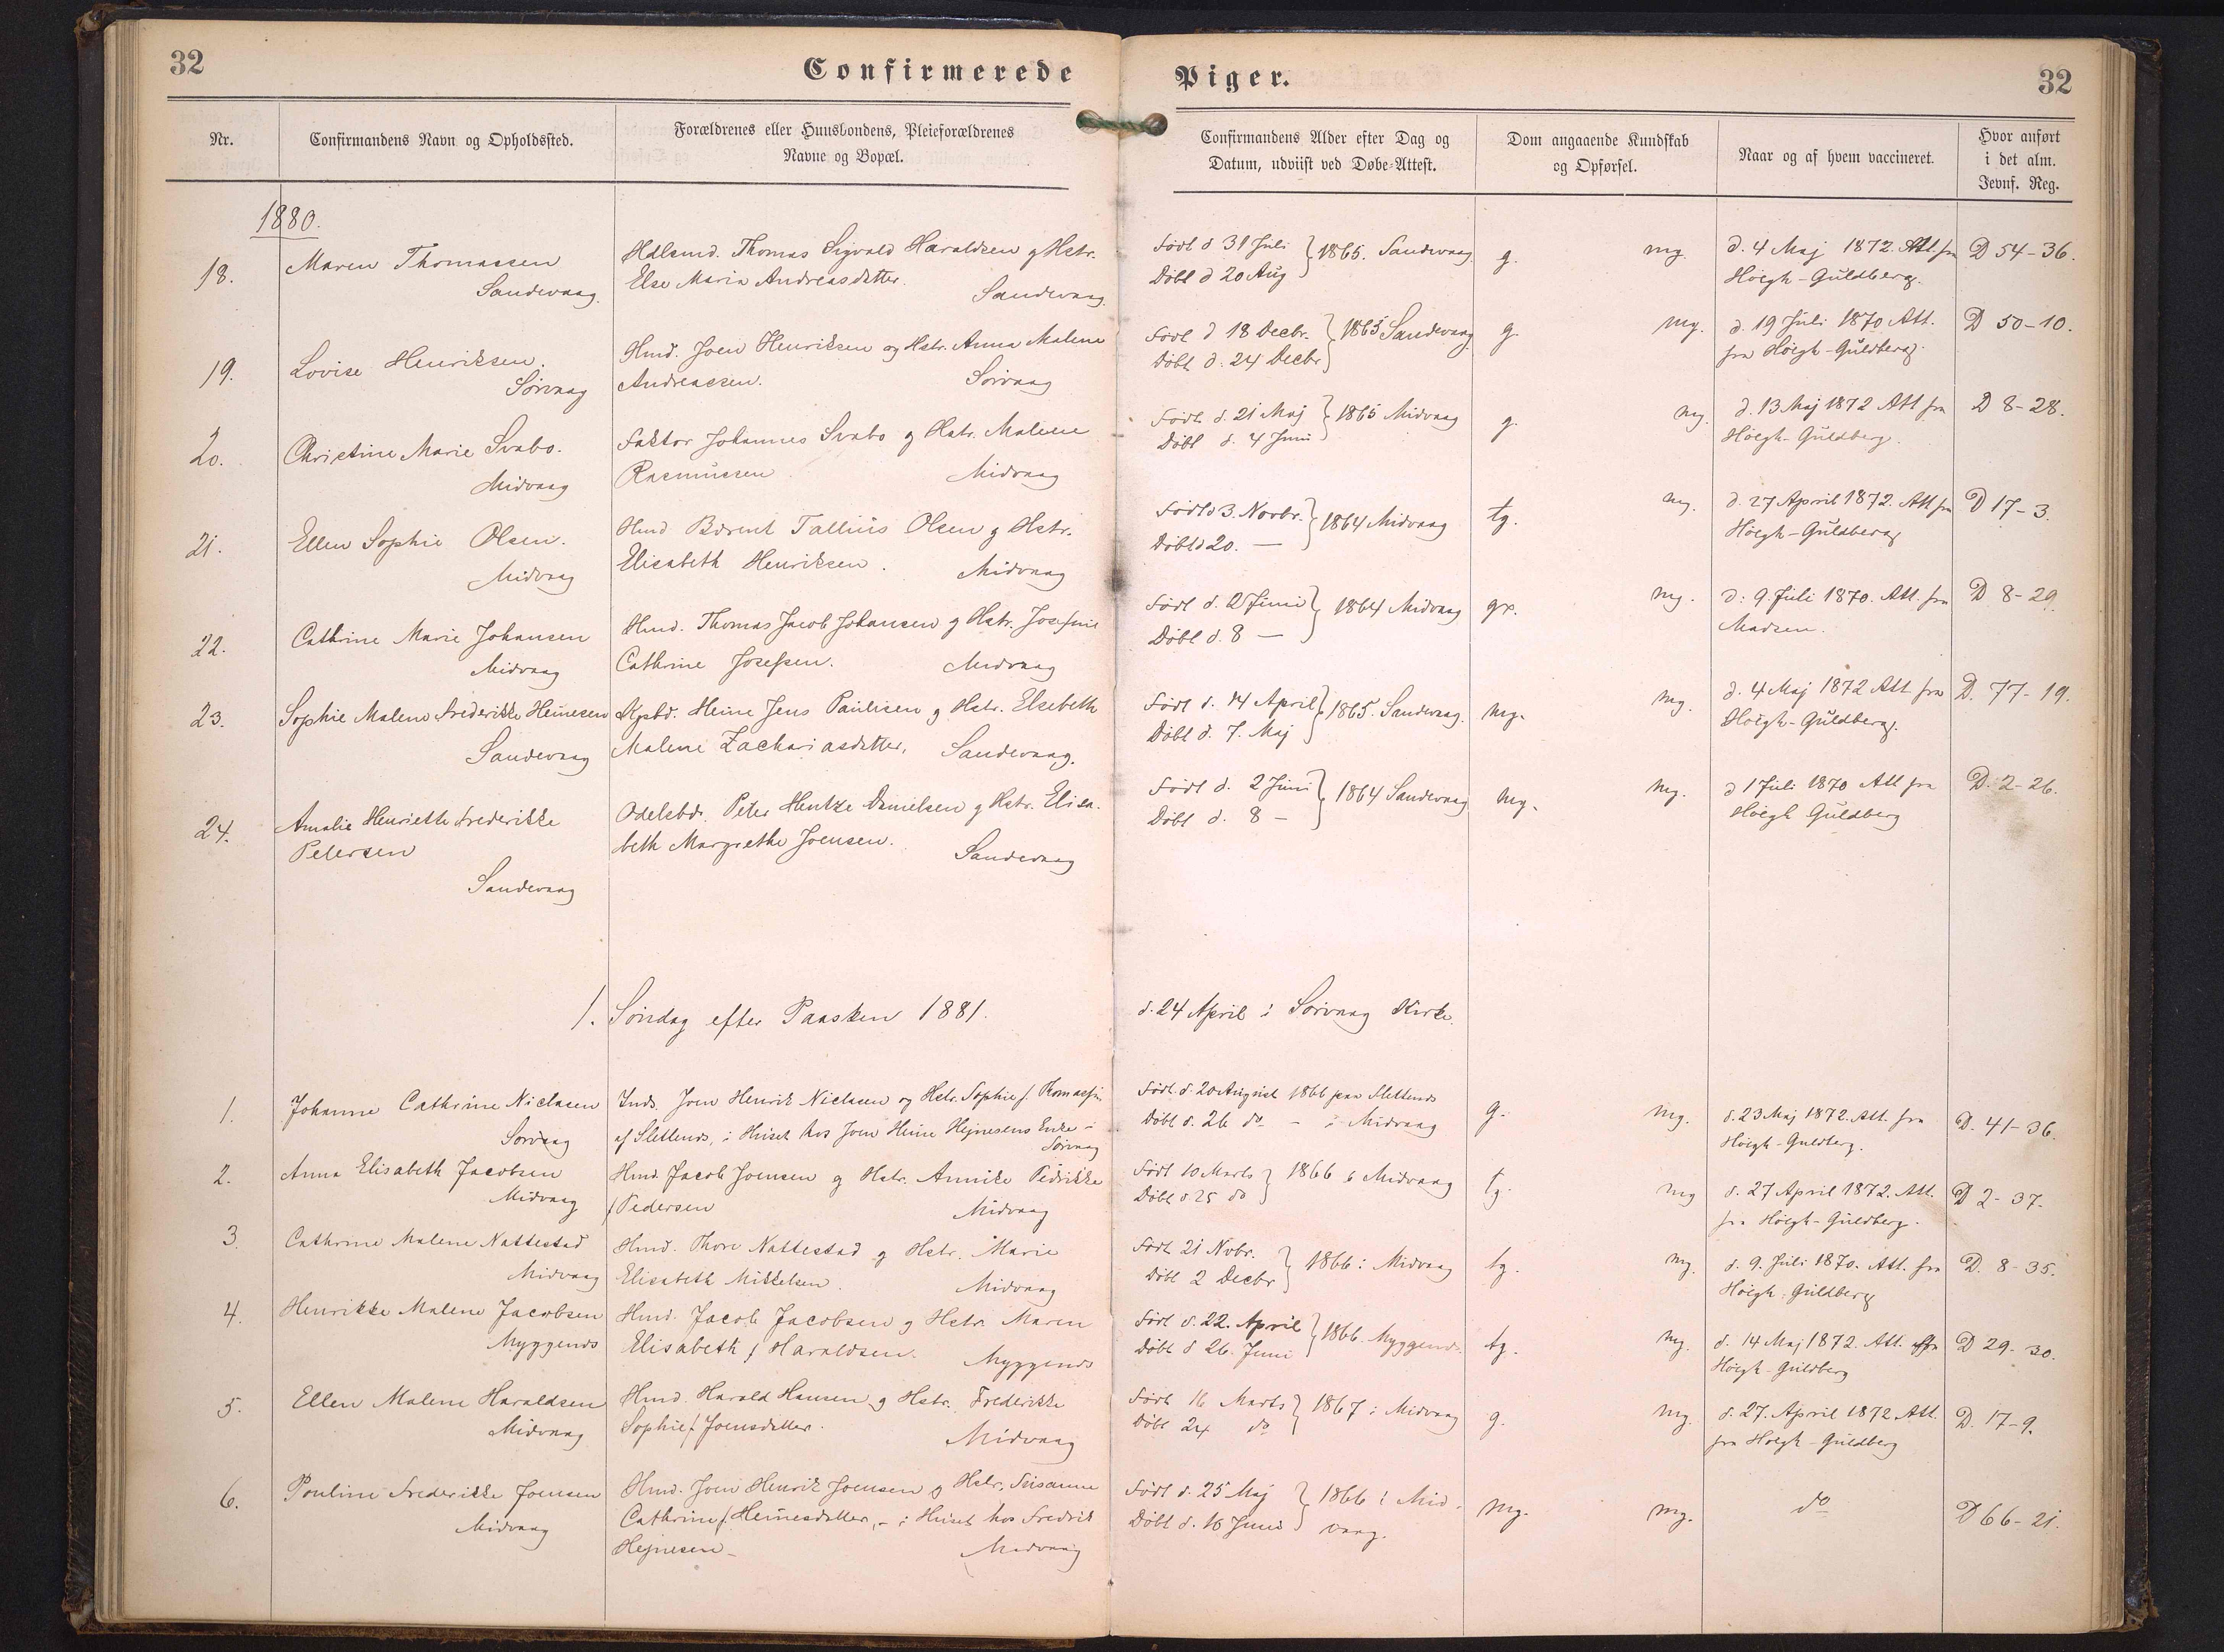 32
Confirmerede Piger.
32
Nr.
Confirmandens Navn og Opholdssted.
Forældrenes eller Huusbondens, Pleieforældrenes
Navne og Bopæl.
Confirmandens Alder efter Dag og
Datum, udviist ved Døbe-Attest.
Dom angaaende Kundskab
og Opførsel.
Naar og af hvem vaccineret.
Hvor anført
i det alm.
Jevnf. Reg.
1880.
18.
Maren Thomassen
Sandevaag.
Thomas Sigvald Haraldsen og Hstr.
Else Maria Andreasdatter.
Sandevaag.
Født d 31 Juli
Døbt d 20 Aug
1865. Sandevaag
g.
mg.
d. 4 Maj 1872. Att. fra
Höegh-Guldberg.
D 54-36.
19.
Lovise Henriksen.
Sörvaag
Hmd. Joen Henriksen og Hstr. Anna Malene
Andreassen.
Sörvaag
Født d 18 Decbr.
Døbt d. 24 Decbr
1865 Sandevaag
g.
mg.
d. 19 Juli 1870 Att.
fra Höegh-Guldberg.
D 50-10.
20.
Christine Marie Svabo.
Midvaag
Faktor Johannes Svabo og Hstr. Malene
Rasmussen
Midvaag
Født d. 21 Maj
Døbt d. 4 Juni
1865 Midvaag
g.
mg.
d. 13 Maj 1872 Att fra
Höegh-Guldberg.
D 8-28.
21.
Ellen Sophie Olsen.
Midvaag
Hmd Bærent Tallius Olsen og Hstr.
Elisabeth Henriksen.
Midvaag
Født d 3. Novbr.
Døbt d 20. —
1864 Midvaag
tg.
mg.
d. 27 April 1872. Att fra
Höegh-Guldberg
D 17-3.
22.
Cathrine Marie Johansen
Midvaag
Hmd. Thomas Jacob Johansen og Hstr. Josefine
Cathrine Josefsen.
Midvaag
Født d. 2 Juni
Døbt d. 8 —
1864 Midvaag
gx.
mg.
d: 9. Juli 1870. Att. fra
Madsen.
D 8-29.
23.
Sophie Malene Frederikke Heinesen
Sandevaag
Kgsbd. Heine Jens Paulisen og Hstr. Elsebeth
Malene Zachariasdatter,
Sandevaag.
Født d. 14 April
Døbt d. 7. Maj
1865. Sandevaag.
mg.
mg.
d. 4 Maj 1872 Att fra
Höegh-Guldberg.
D. 77-19.
24.
Amalie Henriette Frederikke
Petersen
Sandevaag
Odelsbd. Peter Hentze Danielsen og Hstr. Elisa-
beth Margrethe Joensen.
Sandevaag
Født d. 2 Juni
Døbt d. 8 —
1864 Sandevaag
mg.
mg.
d 1 Juli 1870 Att fra
Höegh Guldberg
D. 2-26.
1. Söndag efter Paasken 1881.
d. 24 April i Sörvaag Kirke.
1.
Johanne Cathrine Niclasen
Sorvaag
Inds. Joen Henrik Niclasen og Hstr. Sophie f. Thomassen
af Slettends, i Huset hos Joen Heine Hejnesens Enke i
Sörvaag
Født d. 20 August 1866 paa Slettends
Døbt d. 26 do - i Midvaag
g.
mg.
d. 23 Maj 1872. Att. fra
Höegh-Guldberg.
D. 41-36.
2.
Anna Elisabeth Jacobsen
Midvaag
Hmd. Jacob Joensen og Hstr. Annike Pedrikke
f Pedersen
Midvaag
Født 10 Marts
Døbt d 25 do
1866 i Midvaag
tg.
mg
d. 27 April 1872. Att.
fra Höegh-Guldberg.
D 2-37.
3.
Cathrine Malene Nattestad
Midvaag
Hmd. Thore Nattestad og Hstr. Marie
Elisabeth Mikkelsen.
Midvaag
Født 21 Nvbr.
Døbt 2 Decbr
1866 i Midvaag
tg.
mg.
d. 9. Juli 1870. Att. fra
Höegh-Guldberg
D. 8-35.
4.
Henrikke Malene Jacobsen
Myggends
Hmd. Jacob Jacobsen og Hstr. Maren
Elisabeth f Haraldsen.
Myggends
Født d. 22. April
Døbt d 26. Juni
1866. Myggends.
tg.
mg.
d. 14 Maj 1872. Att. fra
Höegh-Guldberg
D 29-30.
5.
Ellen Malene Haraldsen
Midvaag
Hmd. Harald Hansen og Hstr. Frederikke
Sophie f. Joensdatter.
Midvaag
Født 16 Marts
Døbt 24 do
1867 i Midvaag
g.
mg.
d. 27. April 1872 Att.
fra Höegh-Guldberg
D. 17-9.
6.
Pouline Frederikke Joensen
Midvaag
Hmd. Joen Henrik Joensen og Hstr. Susanne
Cathrine f. Heinesdatter, - i Huset hos Fredrik
Hejnesen -
Midvaag
Født d. 25 Maj
Døbt d. 16 Juni
1866 i Mid-
vaag.
mg.
mg.
do
D 66-21.